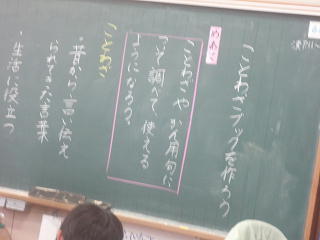 ことわざブックを作ろう
めあて
ことわざやかん用句に
ついて調べて、使える
ようになろう。
ことわざ
・昔から言い伝え
られてきた言葉
・生活に役立つ